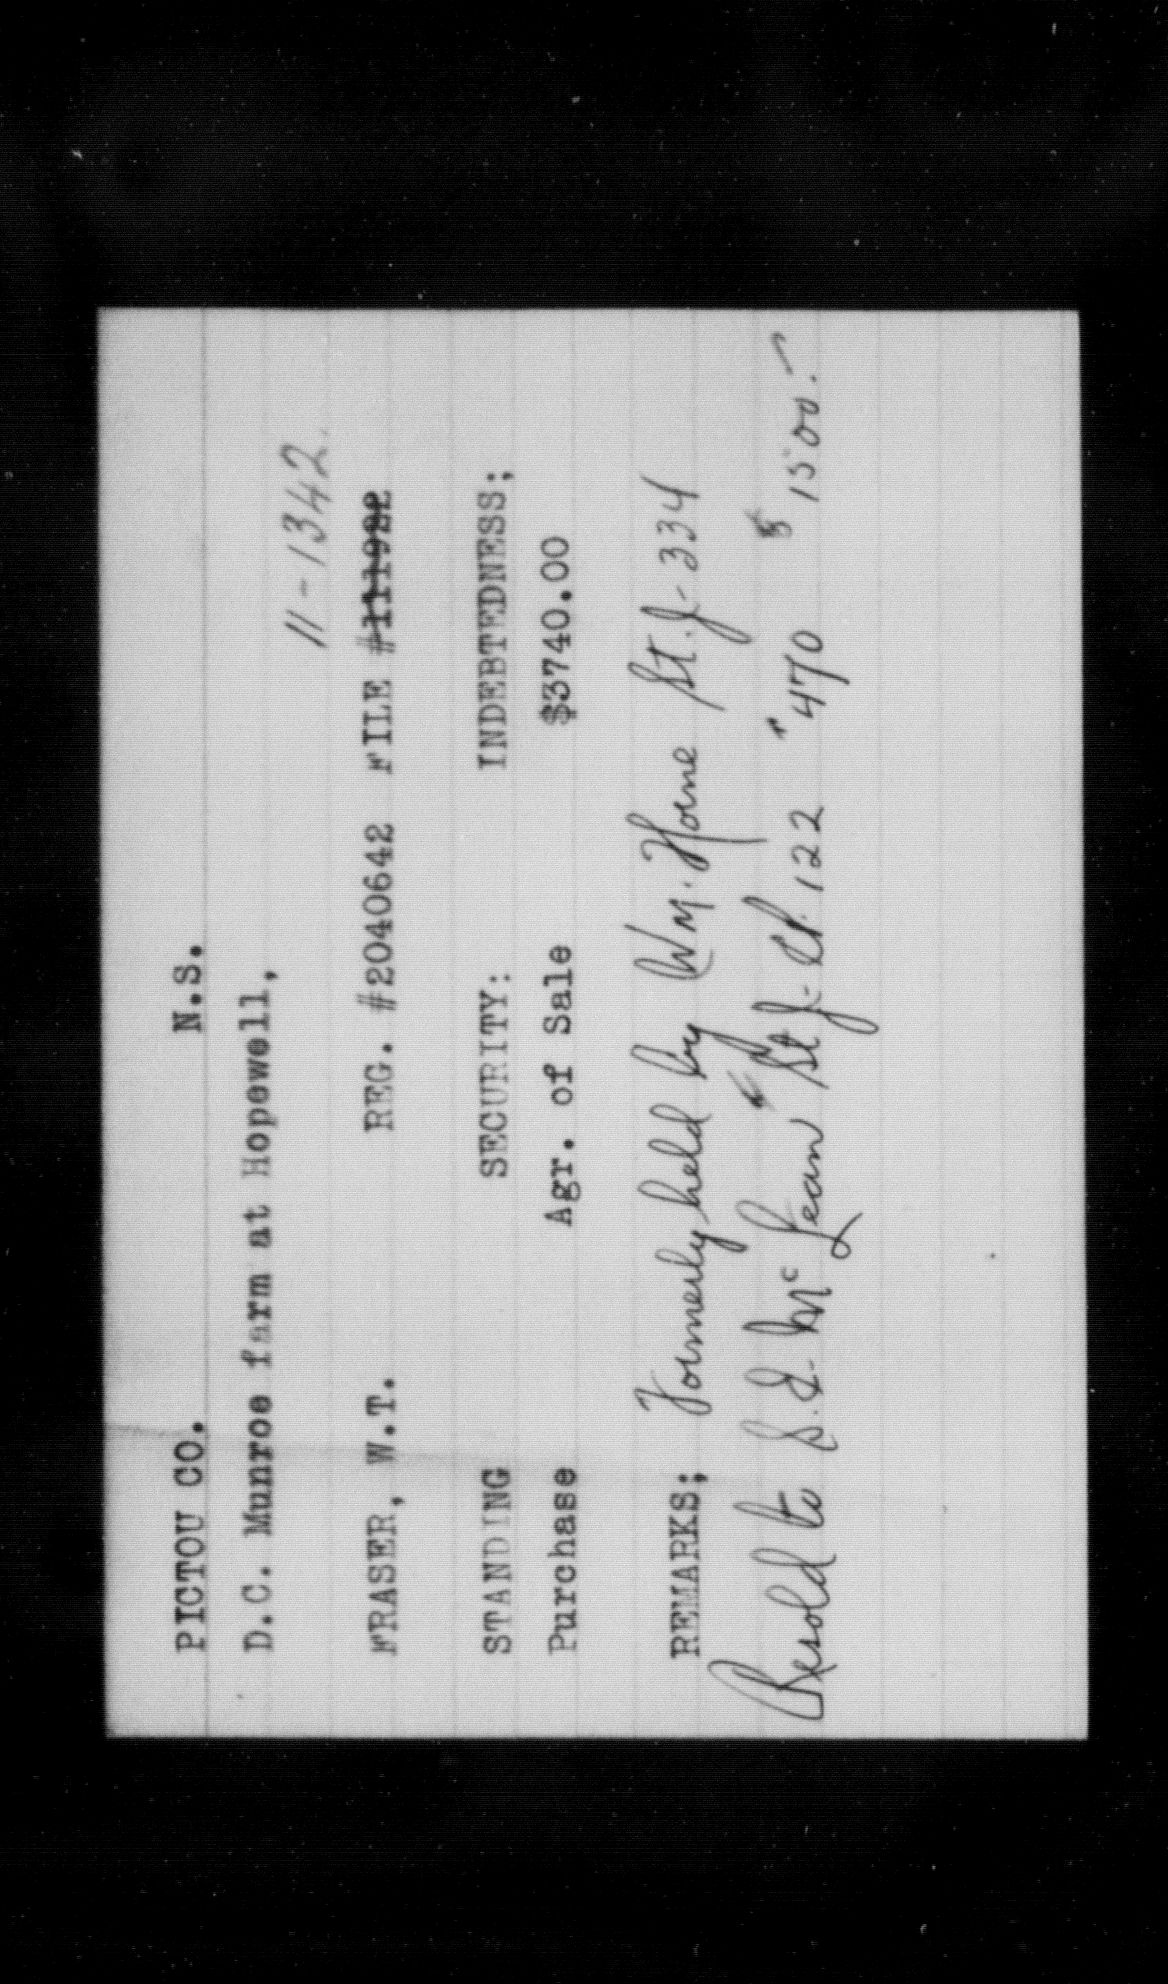 PICTOU CO. N.S.
D.C. Munroe farm at Hopewell,
11-1342.
FRASER, W.T. REG. #2040642 FILE #111982
STANDING SECURITY: INDEBTEDNESS;
Purchase Agr. of Sale $3740.00
REMARKS; Formerly held by Wm. Horne St.J-334
Resold to S.D. McLean St J- Cl. 122 " 470 $ 1500.-